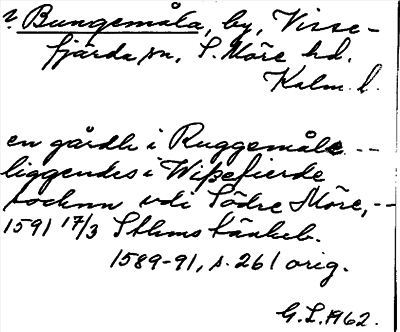 ? Bungemåla, by, Visse-
fjärda sn, S. Möre hd.
Kalm. l.
en gårdh i Ruggemåle --
liggendes i Wißefierde
sochnn vdi Södre Möre, --
1591 17/3 Sthms tänkeb.
1589-91, s. 261 orig.
G.L. 1962.